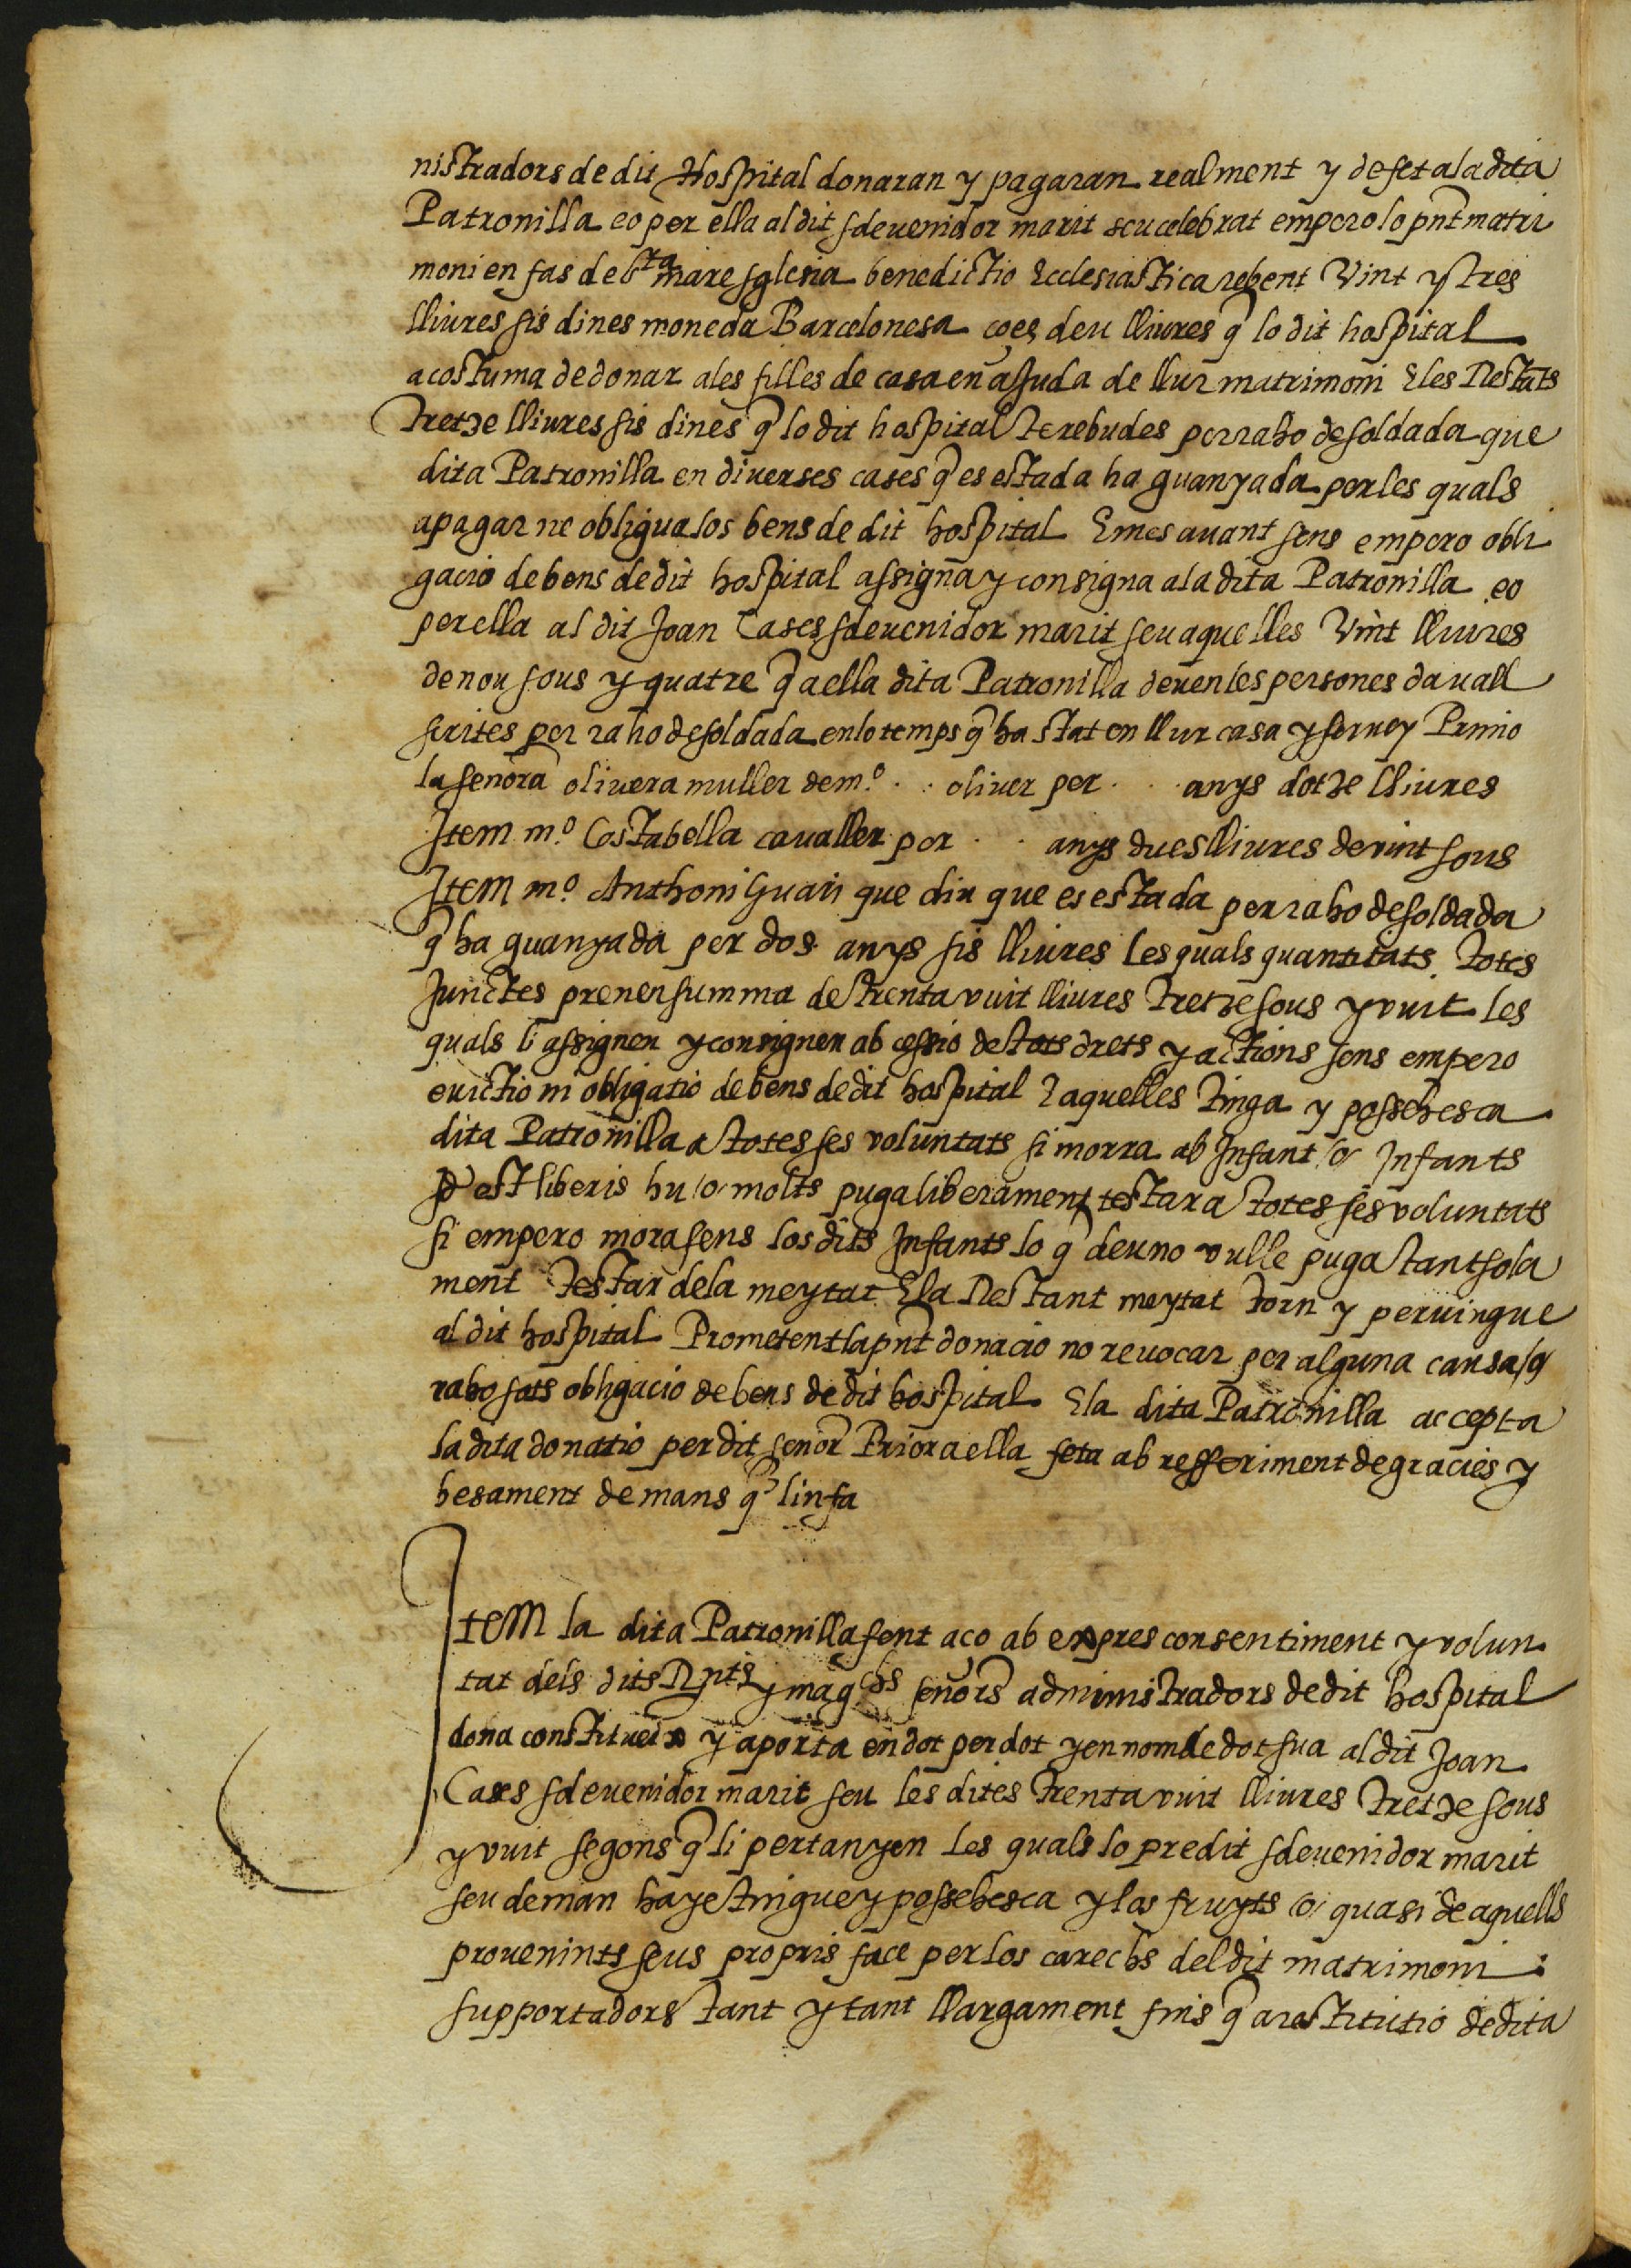 nistradors de dit Hospital donaran y pagaran realment y de fet a la dita
Patronilla eo per ella al dit sdevenidor marit seu celebrat empero lo pnt matri
moni en fas de sta mare sglesia benedictio Ecclesiastica rebent Vint y tres
lliures sis dines moneda Barcelonesa ço es deu lliures q̃ lo dit hospital
acostuma de donar a les filles de casa en ajuda de llur matrimoni E les Restats
tretze lliures sis dines q̃ lo dit hospital te rebudes per raho de soldada que
dita Patronilla en diverses cases q̃ es estada ha guanyada per les quals
a pagar ne obligua los bens de dit hospital E mes avant sens empero obli
gacio de bens de dit hospital assigna y consigna a la dita Patronilla eo
per ella al dit Joan Cases sdevenidor marit seu aquelles Vint lliures
de nou sous y quatre q̃ a ella dita Patronilla deuen les persones davall
scrites per raho de soldada en lo temps q̃ ha stat en llur casa y servey Primo
la senora olivera muller de m.º . . oliver per . . anys dotze lliures
Item m.º Costabella cavaller per . . anys dues lliures de vint sous
Item m.º Anthoni Guari que diu que es estada per raho de soldada
q̃ ha guanyada per dos anys sis lliures les quals quantitats totes
Junctes prenen summa de trenta vuit lliures tretze sous y vuit les
quals li assignen y consignen ab cessio de tots drets y actions sens empero
evictio ni obligatio de bens de dit hospital E aquelles tinga y possehesca
dita Patronilla a totes ses voluntats si morra ab Infant /o/ Infants
p est liberis hu /o/ molts puga liberament testar a totes ses voluntats
si empero mora sens los dits Infants lo q̃ deu no vulle puga tant sola
ment testar de la meytat E la Restant meytat torn y pervingue
al dit hospital Prometent la pnt donacio no revocar per alguna causa /o/
raho sots obligacio de bens de dit hospital E la dita Patronilla accepta
la dita donatio per dit senor Prior a ella feta ab refferiment de gracies y
besament de mans q̃ lin fa
Item la dita Patronilla fent aço ab expres consentiment y volun
tat dels dits Rnts y magchs senors administradors de dit hospital
dona constitueix y aporta en dot per dot y en nom de dot sua al dit Joan
Cases sdevenidor marit seu les dites trenta vuit lliures tretze sous
y vuit segons q̃ li pertanyen les quals lo predit sdevenidor marit
seu deman haje tingue y possehesca y los fruyts /o/ quasi de aquells
provenints seus propris face per los carechs del dit matrimoni :
supportadors tant y tant llargament fins q̃ a restitutio de dita